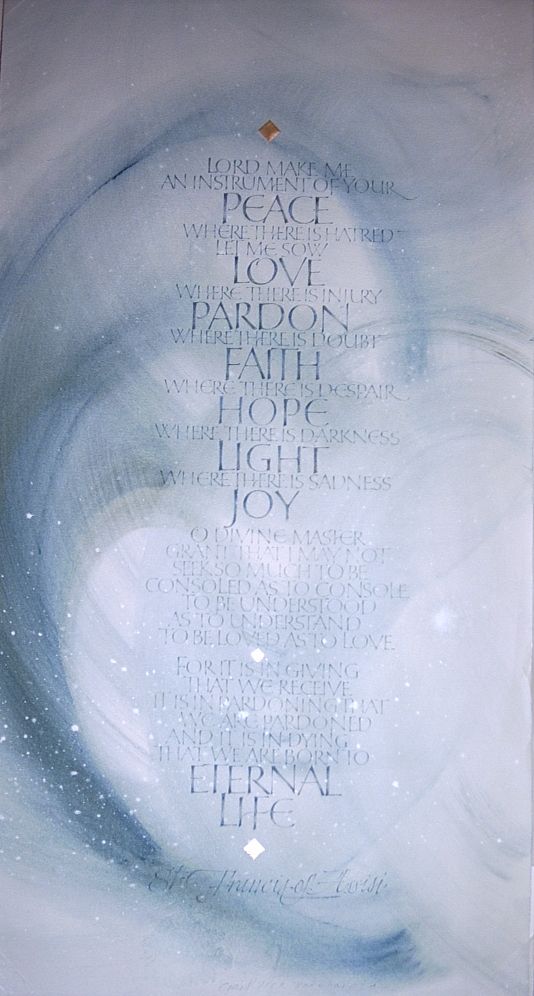 LORD MAKE ME
AN INSTRUMENT OF YOUR
PEACE
WHERE THERE IS HATRED
LET ME SOW
LOVE
WHERE THERE IS INJURY
PARDON
WHERE THERE IS DOUBT
FAITH
WHERE THERE IS DESPAIR
HOPE
WHERE THERE IS DARKNESS
LIGHT
WHERE THERE IS SADNESS
JOY
O DIVINE MASTER
GRANT THAT I MAY NOT
SEEK SO MUCH TO BE
CONSOLED AS TO CONSOLE
TO BE UNDERSTOOD
AS TO UNDERSTAND
TO BE LOVED AS TO LOVE
FOR IT IS IN GIVING
THAT WE RECEIVE
IT IS IN PARDONING THAT
WE ARE PARDONED
AND IT IS IN DYING
THAT WE ARE BORN TO
ETERNAL
LIFE
St Francis of Assisi